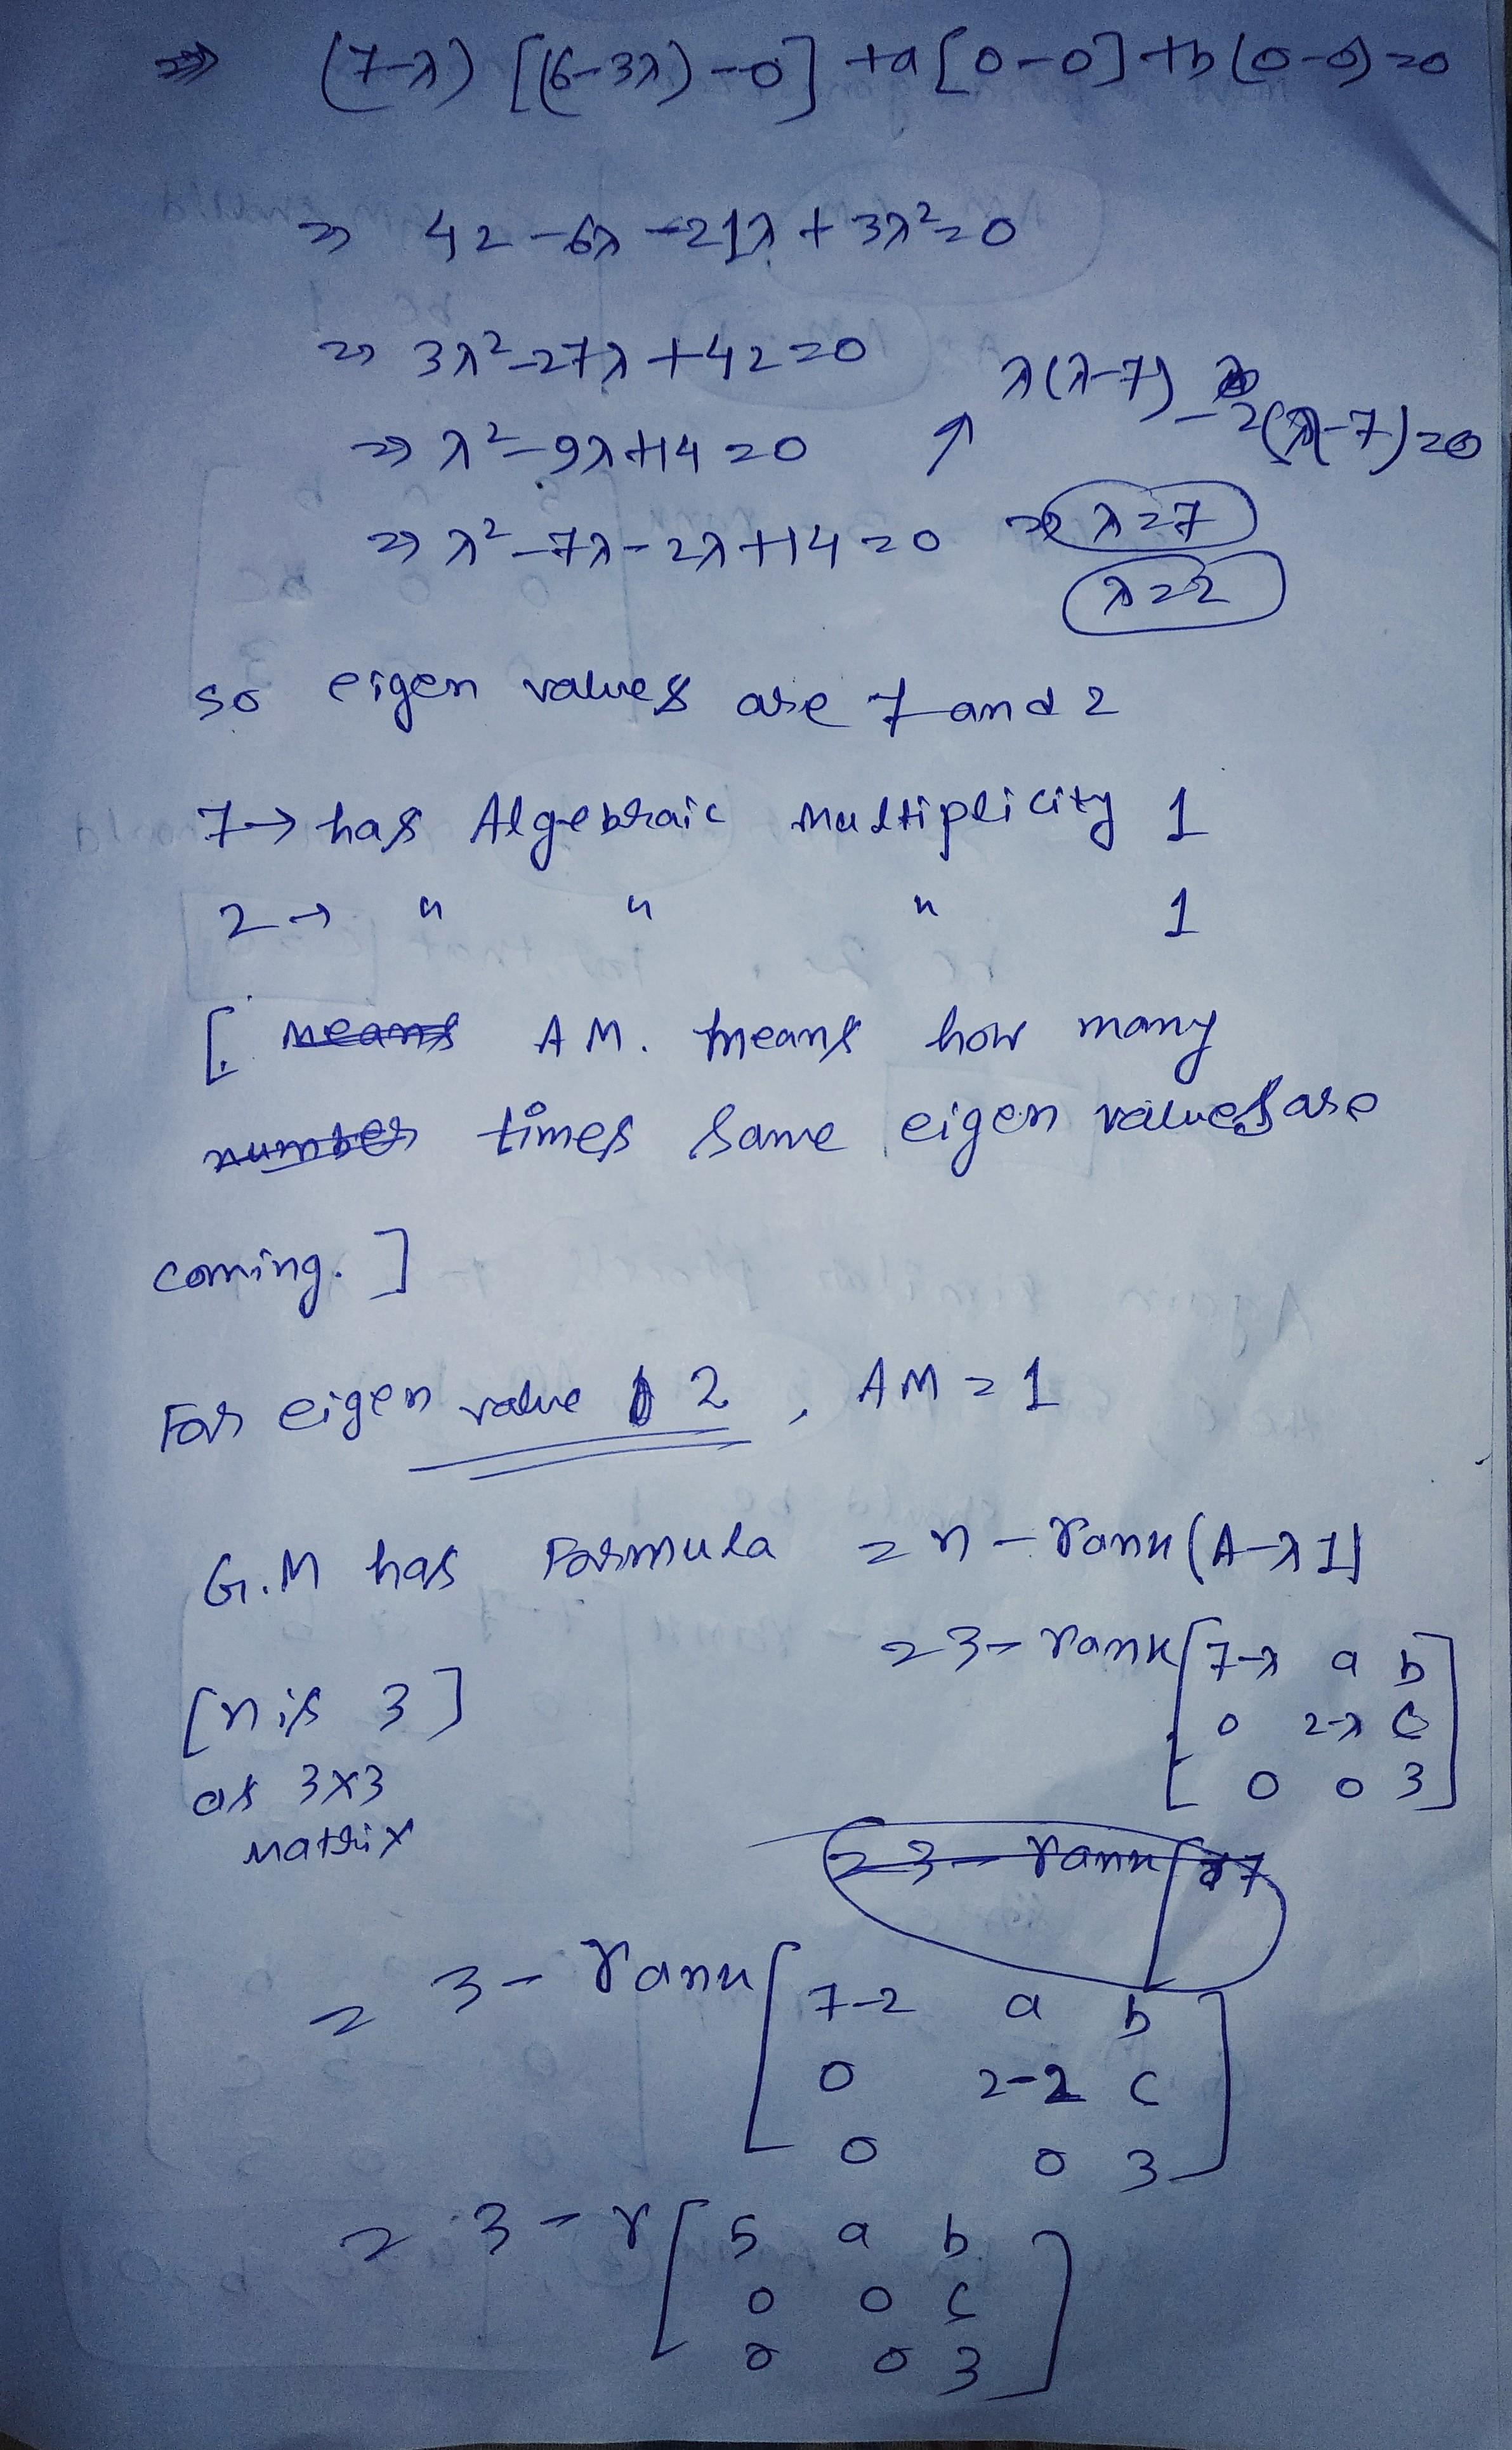 ⇒ (7-λ) [(6-3λ)-0] +a[0-0]+b(0-0)=0
⇒ 42-6λ-21λ+3λ²=0
⇒ 3λ²-27λ+42=0
λ(λ-7)
-2(λ-7)=0
⇒ λ²-9λ+14=0 ↑
⇒ λ²-7λ-2λ+14=0 ⇒ λ=7
λ=2
so eigen values are 7 and 2
7→ has Algebraic Multiplicity 1
2→ " " " 1
[ means AM. means how many
number times same eigen values are
coming. ]
For eigen value 2, AM=1
G.M has Formula = n - rank(A-λI)
= 3- rank [7-λ a b
[n is 3] 0 2-λ c
as 3×3 0 0 3]
Matrix
= 3- rank [ 7
= 3- rank [7-2 a b
0 2-2 c
0 0 3]
= 3-r [5 a b
0 0 c
0 0 3]